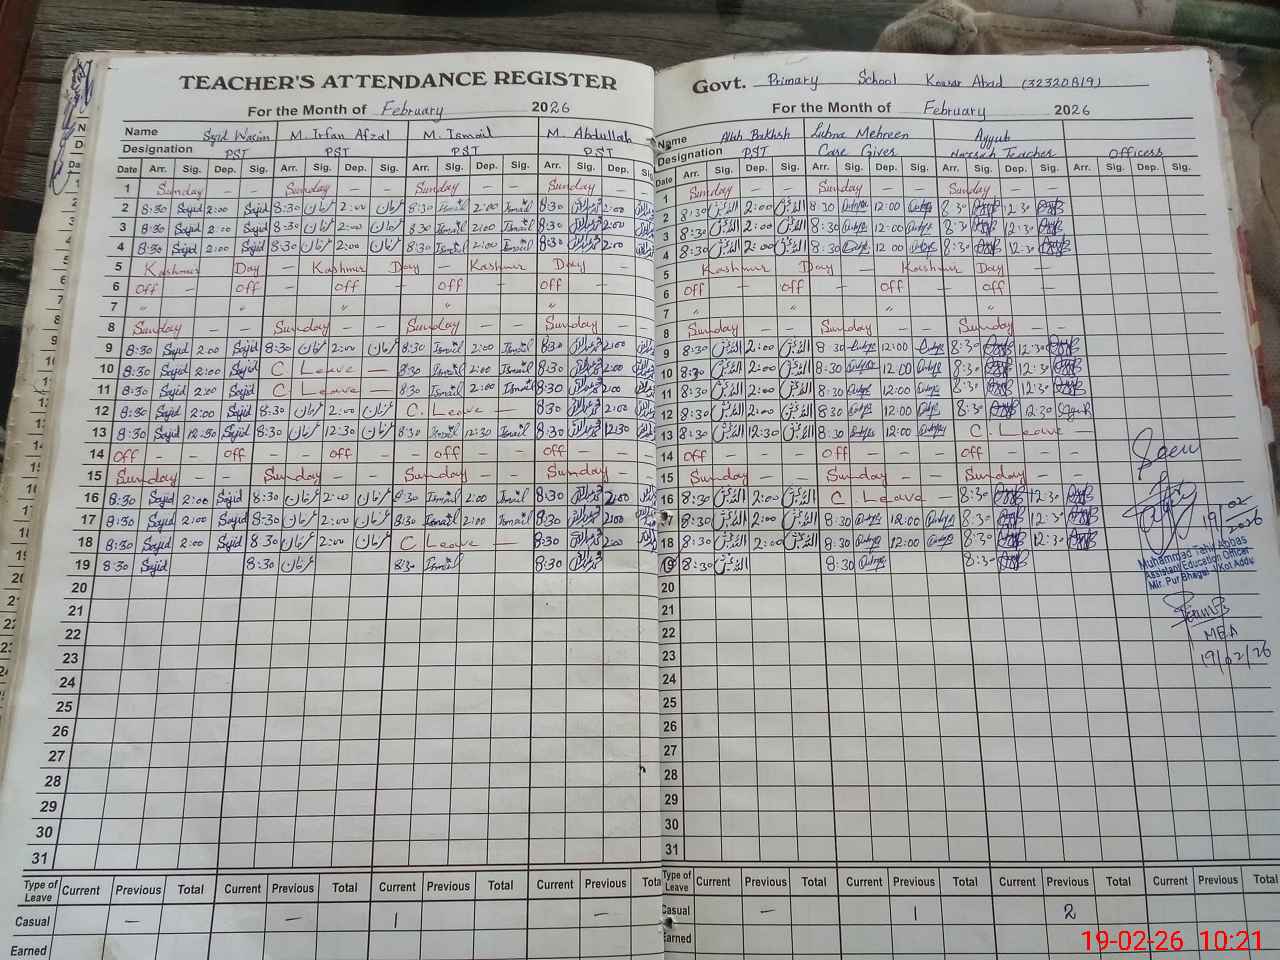 TEACHER'S ATTENDANCE REGISTER
For the Month of February 2026
Name Sajid Wasim M. Irfan Afzal M. Ismail M. Abdullah
Designation PST PST PST PST
Date Arr. Sig. Dep. Sig. Arr. Sig. Dep. Sig. Arr. Sig. Dep. Sig. Arr. Sig. Dep. Sig.
1 Sunday – – Sunday – – Sunday – – Sunday –
2 8:30 Sajid 2:00 Sajid 8:30 عرفان 2:00 عرفان 8:30 Ismail 2:00 Ismail 8:30 2:00
3 8:30 Sajid 2:00 Sajid 8:30 عرفان 2:00 عرفان 8:30 Ismail 2:00 Ismail 8:30 2:00
4 8:30 Sajid 2:00 Sajid 8:30 عرفان 2:00 عرفان 8:30 Ismail 2:00 Ismail 8:30 2:00
5 Kashmir Day – Kashmir Day – Kashmir Day –
6 Off – Off – Off – Off – Off –
7 " " " "
8 Sunday – – Sunday – – Sunday – – Sunday –
9 8:30 Sajid 2:00 Sajid 8:30 عرفان 2:00 عرفان 8:30 Ismail 2:00 Ismail 8:30 2:00
10 8:30 Sajid 2:00 Sajid C. Leave — 8:30 Ismail 2:00 Ismail 8:30 2:00
11 8:30 Sajid 2:00 Sajid C. Leave — 8:30 Ismail 2:00 Ismail 8:30 2:00
12 8:30 Sajid 2:00 Sajid 8:30 عرفان 2:00 عرفان C. Leave — 8:30 2:00
13 8:30 Sajid 12:30 Sajid 8:30 عرفان 12:30 عرفان 8:30 Ismail 12:30 Ismail 8:30 12:30
14 Off – – Off – – Off – – Off – – Off – –
15 Sunday – – Sunday – – Sunday – – Sunday –
16 8:30 Sajid 2:00 Sajid 8:30 عرفان 2:00 عرفان 8:30 Ismail 2:00 Ismail 8:30 2:00
17 8:30 Sajid 2:00 Sajid 8:30 عرفان 2:00 عرفان 8:30 Ismail 2:00 Ismail 8:30 2:00
18 8:30 Sajid 2:00 Sajid 8:30 عرفان 2:00 عرفان C Leave — 8:30 2:00
19 8:30 Sajid 8:30 عرفان 8:30 Ismail 8:30
20
21
22
23
24
25
26
27
28
29
30
31
Type of Leave Current Previous Total Current Previous Total Current Previous Total Current Previous Total
Casual – – 1 –
Earned
Govt. Primary School Kowsar Abad (32320819)
For the Month of February 2026
Name Allah Bakhsh Lubna Mehreen Ayyub
Designation PST Care Giver Teacher Officers
Date Arr. Sig. Dep. Sig. Arr. Sig. Dep. Sig. Arr. Sig. Dep. Sig. Arr. Sig. Dep. Sig.
1 Sunday – – Sunday – – Sunday – –
2 8:30 2:00 8:30 12:00 8:30 12:30
3 8:30 2:00 8:30 12:00 8:30 12:30
4 8:30 2:00 8:30 12:00 8:30 12:30
5 Kashmir Day – Kashmir Day –
6 Off – Off – Off – Off –
7 " " " "
8 Sunday – – Sunday – – Sunday – –
9 8:30 2:00 8:30 12:00 8:30 12:30
10 8:30 2:00 8:30 12:00 8:30 12:30
11 8:30 2:00 8:30 12:00 8:30 12:30
12 8:30 2:00 8:30 12:00 8:30 12:30
13 8:30 12:30 8:30 12:00 C. Leave —
14 Off – – – Off – – – Off – –
15 Sunday – – Sunday – – Sunday – –
16 8:30 2:00 C. Leave – 8:30 12:30
17 8:30 2:00 8:30 12:00 8:30 12:30
18 8:30 2:00 8:30 12:00 8:30 12:30
19 8:30 8:30 8:30
20
21
22
23
24
25
26
27
28
29
30
31
Seen
19/02/2026
Muhammad Tahir Abbas
Assistant Education Officer
Mir Pur Bhagal / Kot Addu
MEA
19/02/26
Type of Leave Current Previous Total Current Previous Total Current Previous Total Current Previous Total
Casual – 1 2
Earned
19-02-26 10:21